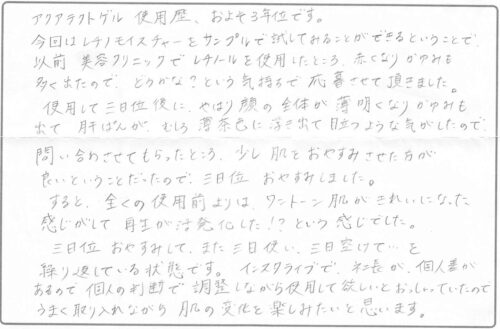 アクアラクトゲル 使用歴、およそ3年位です。
今回はレチノモイスチャーをサンプルで試してみることができるということで、
以前 美容クリニックでレチノールを使用したところ、赤くなりかゆみも
多く出たので、どうかな？という気持ちで 応募させて頂きました。
使用して三日位後に、やはり顔の全体が薄明くなりかゆみも
出て 肝ぱんが、むしろ 薄茶色に浮き出て目立つような気がしたので、
問い合わせさせてもらったところ、少し肌をおやすみさせた方が
良いということだったので、三日位 おやすみしました。
すると、全くの使用前よりは、ワントーン肌がきれいになった
感じがして 再生が活発化した!? という感じでした。
三日位 おやすみして、また三日使い、三日空けて…を
繰り返している状態です。インスタライブで、社長が、個人差が
あるので個人の判断で調整しながら使用して欲しいとおっしゃっていたので
うまく取り入れながら 肌の変化を楽しみたいと思います。